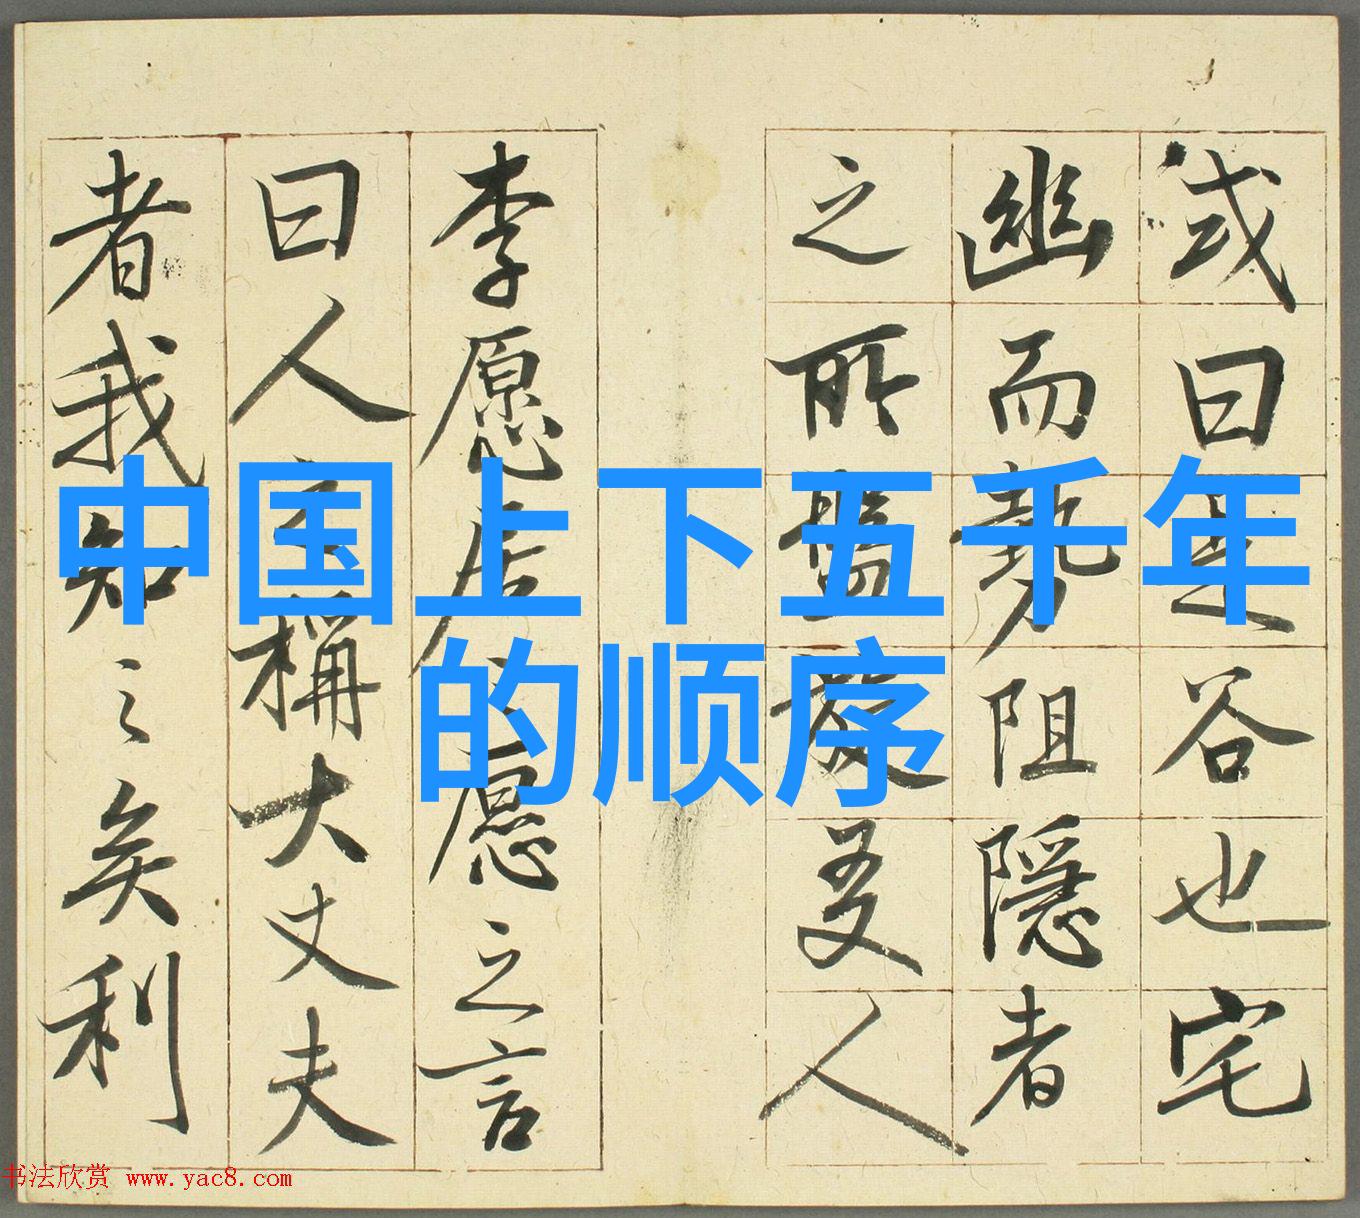 或曰是谷也宅
幽而勢阻隱者
之所盤旋友人
李愿居之愿之言
曰人之稱大丈夫
者我知之矣利
中国上下五千年
的顺序
书法欣赏 www.yac8.com